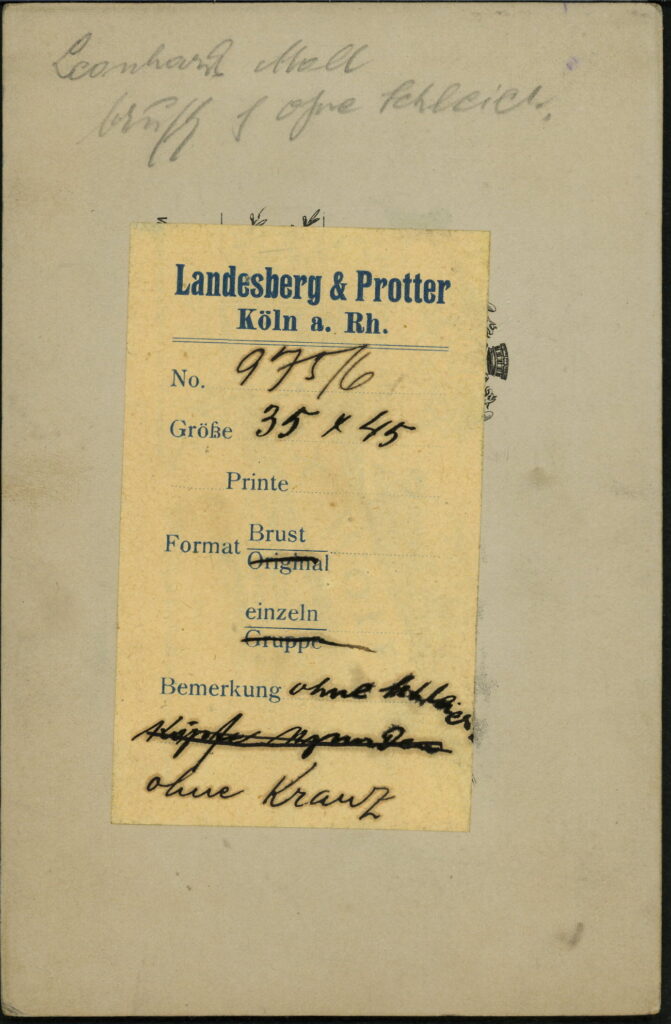 Leonhard Moll
Brust f ohne Schleier.
Landesberg & Protter
Köln a. Rh.
No. 975/6
Größe 35 x 45
Printe
Format Brust
Original
einzeln
Gruppe
Bemerkung ohne Schleier
ohne Kranz